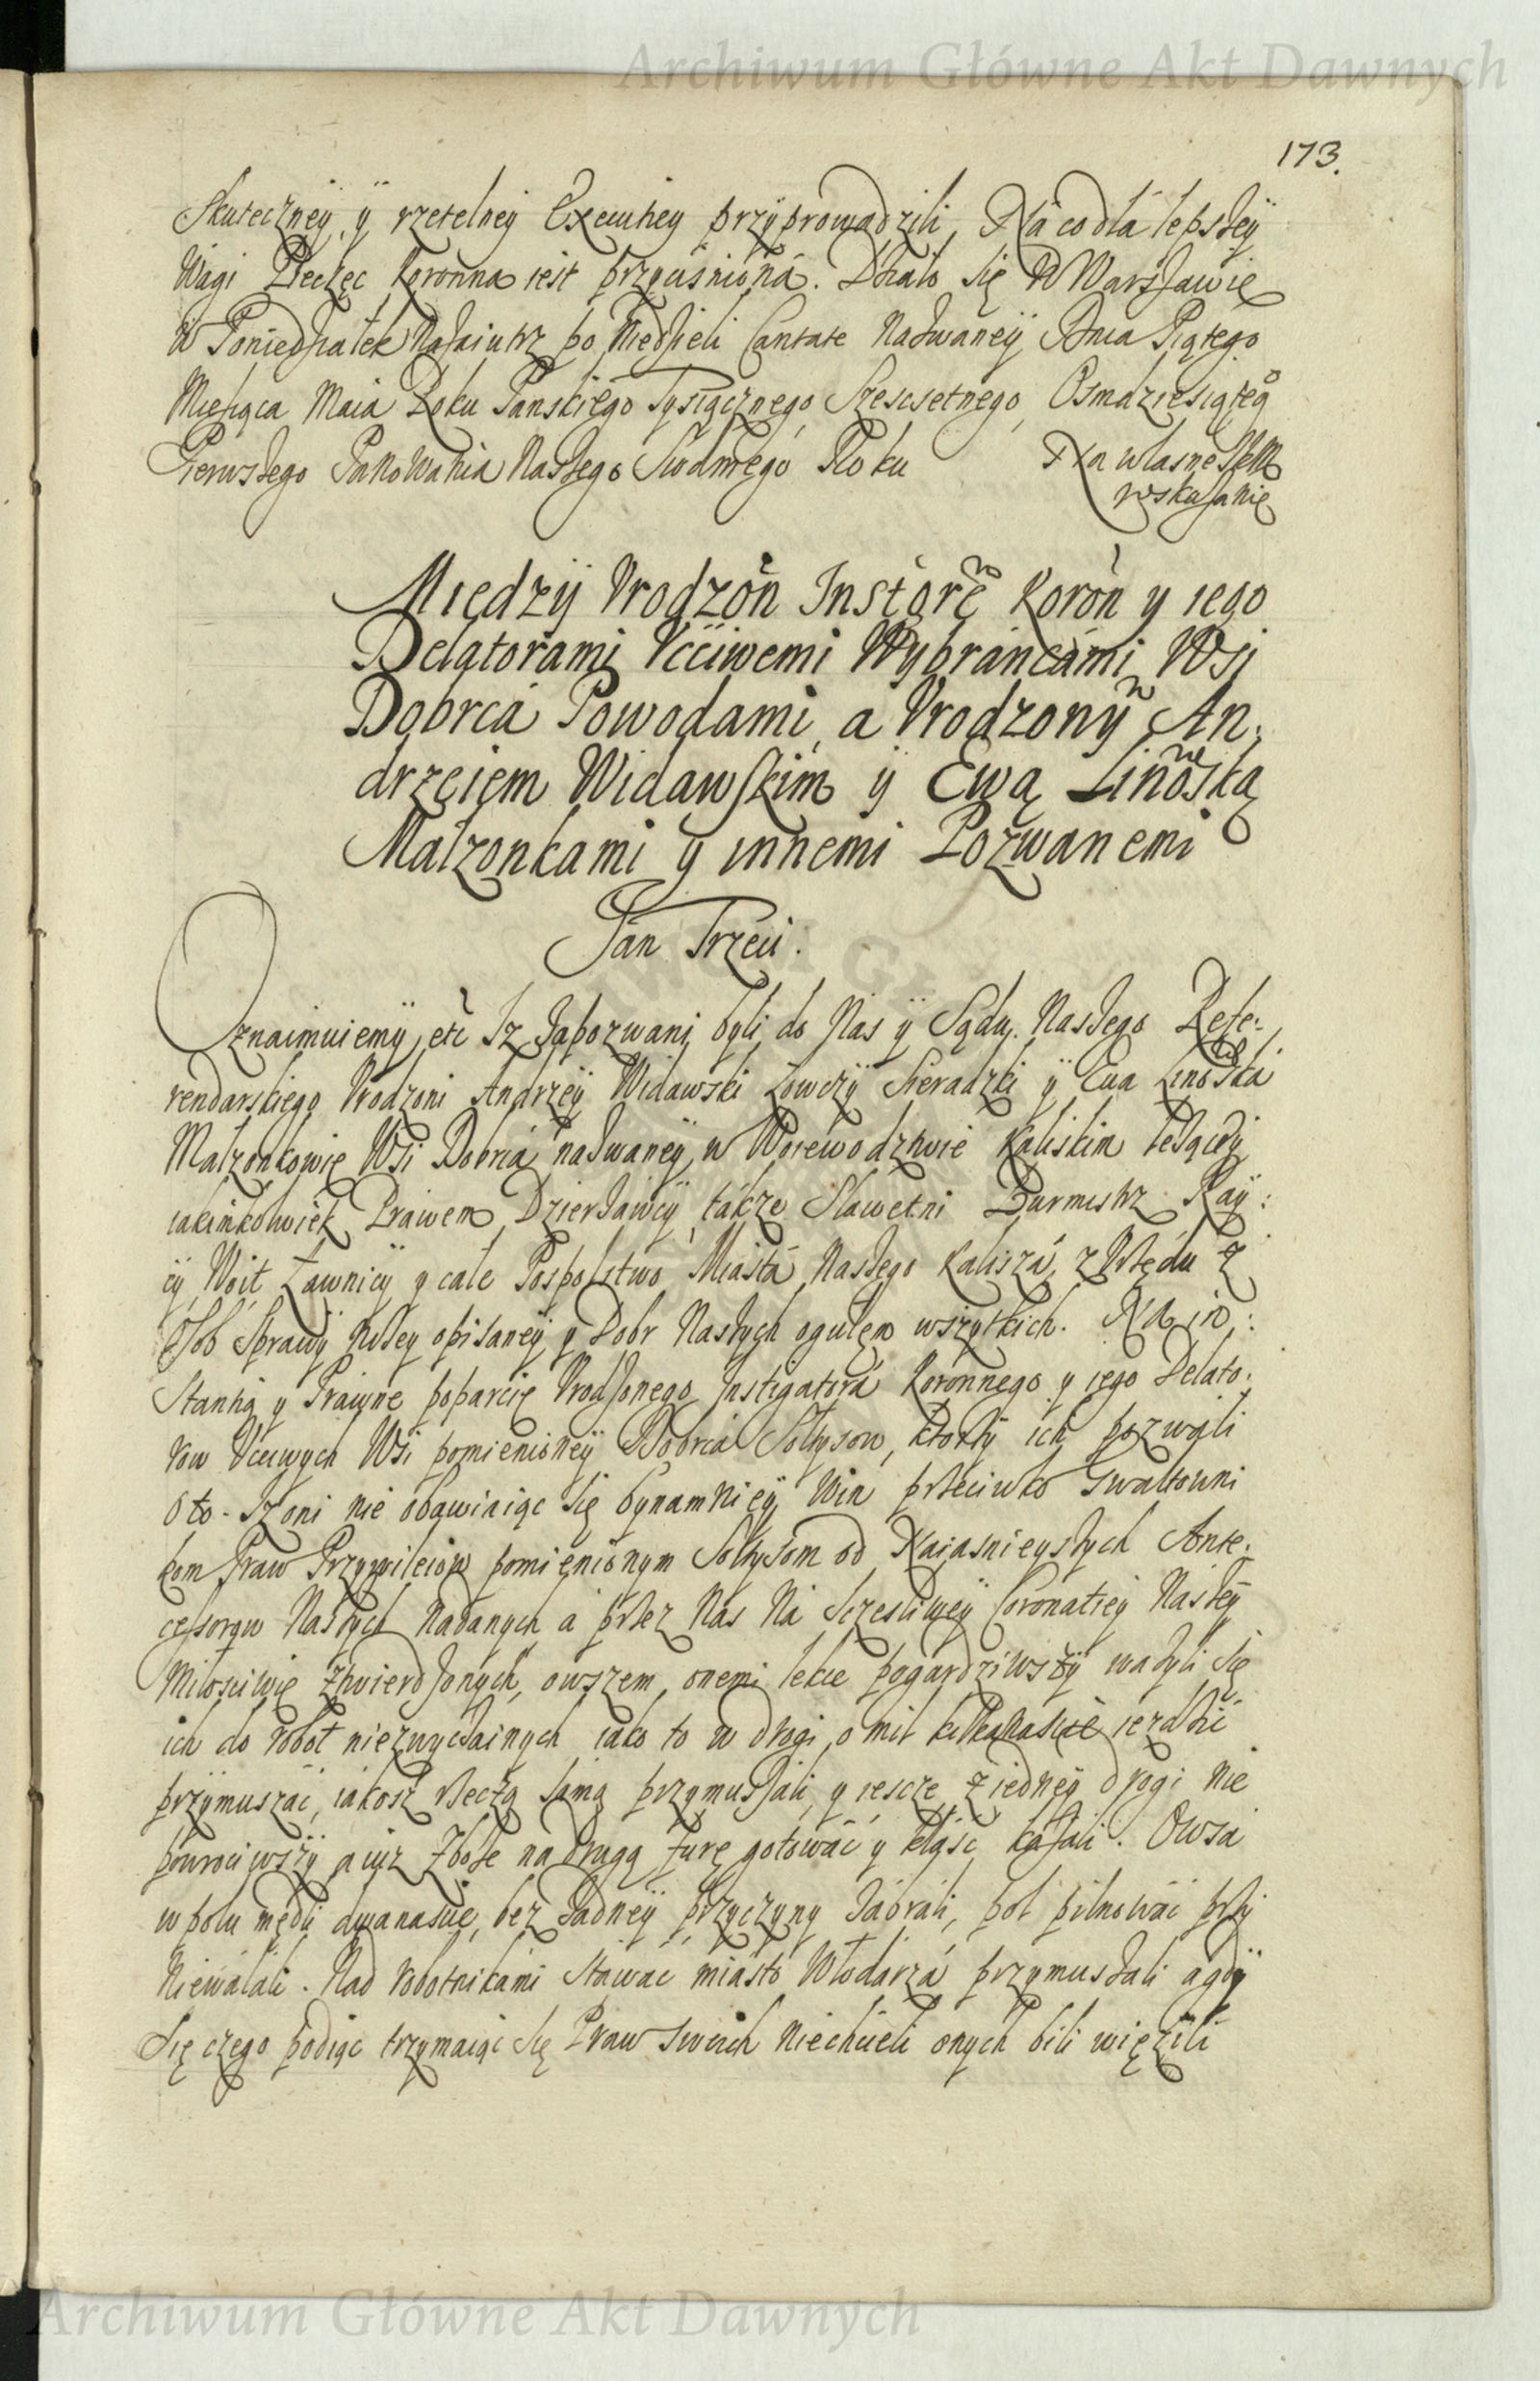 Archiwum Główne Akt Dawnych
173.
Skuteczney, y rzetelney Execucyey przyprowadzili, Na co dla lepszey
Wagi Pieczęc Koronna iest przycisniona. Dźiało się w Warszawie
w Poniedźiałek Nazaiutrz po Niedźieli Cantate Nazwaney Dnia Piątego
Mieśiąca Maia Roku Panskiego Tysiącznego Szescsetnego, Osmdziesiąteg°
Pierwszego Panowania Naszego Siodmego Roku Na własne JKM
wskazanie
Między Vrodzon Instgrē Koron y iego
Delatorami Vććiwemi Wybrancami Wsi
Dobrca Powodami, a Vrodzonÿ An:
drzeiem Widawskim y Ewą Linoską
Małzonkami y innemi Pozwanemi
Jan Trzeci.
Oznaimuiemy, etc Iz zapozwani byli do Nas y Sądu Naszego Refe:
rendarskiego Vrodzoni Andrzey Widawski Łowczy Sieradzki y Ewa Linoska
Małzonkowie Wsi Dobrca nazwaney, w Woiewodztwie Kaliskim lezącey
iakimkolwiek Prawem Dzierzawcy, takze Sławetni Burmistrz Ray:
cy, Woit Ławnicy y całe Pospolstwo Miasta Naszego Kalisza, z Vrzędu z
Osob Sprawy nizey opisaney y Dobr Naszych ogułem wszytkich. Na in:
Stantią y Prawne poparcie Vrodzonego Instigatora Koronnego y iego Delato:
row Vcciwych Wsi pomienioney Dobrca Sołtysow, ktorzy ich pozwali
o to. Iz oni nie obawiaiąc się bynamniey Win przeciwko Gwałtowni
kom Praw Przywileiow pomienionym Sołtysom od Naiasnieyszych Ante:
cessorow Naszych Nadanych a przez Nas Na Sczesliwey Coronatiey Naszey
Miłosciwie ztwierdzonych, owszem, onemi lekce pogardziwszy wazyli się
ich do robot niezwyczainych iako to w drogi, o mil kilkanascie iezdzić
przymuszać, iakosz rzeczą samą przymuszali, y iescze z iedney drogi nie
powrociwszy, a iuz zboze na drugą furę gotować y kłaść kazali. Owsa
w polu mędli dwanascie, bez zadney przyczyny zabrali, pol pilnować przy
niewalali. Nad robotnikami stawać miasto Włodarza przymuszali a gdy
się czego podiąc trzymaiąc się Praw swoich niechcieli onych bili więzili
Archiwum Główne Akt Dawnych